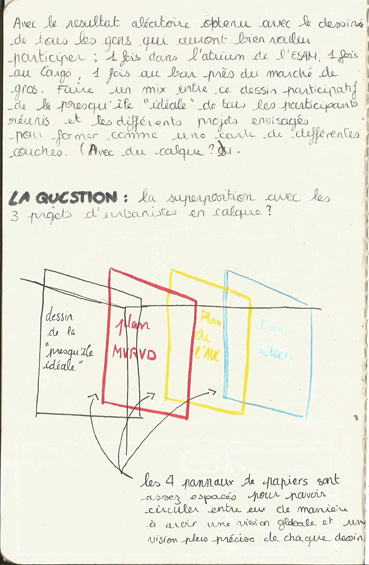 Avec le resultat aléatoire obtenu avec le dessin
de tous les gens qui auront bien voulu
participer : 1 fois dans l'atrium de l'ESAM, 1 fois
au Cargö, 1 fois au bar près du marché de
gros. Faire un mix entre ce dessin participatif
de la presqu'île "idéale" de tous les participants
réunis et les différents projets envisagés
pour former comme une carte de différentes
couches. (Avec du calque ?)
LA QUESTION : la superposition avec les
3 projets d'urbanistes en calque ?
dessin
de la
"presqu'île
idéale"
plan
MVRVD
Plan
de
l'AUC
les 4 pannaux de papiers sont
assez espacés pour pouvoir
circuler entre eux de manière
à avoir une vision globale et un
vision plus précise de chaque dessin